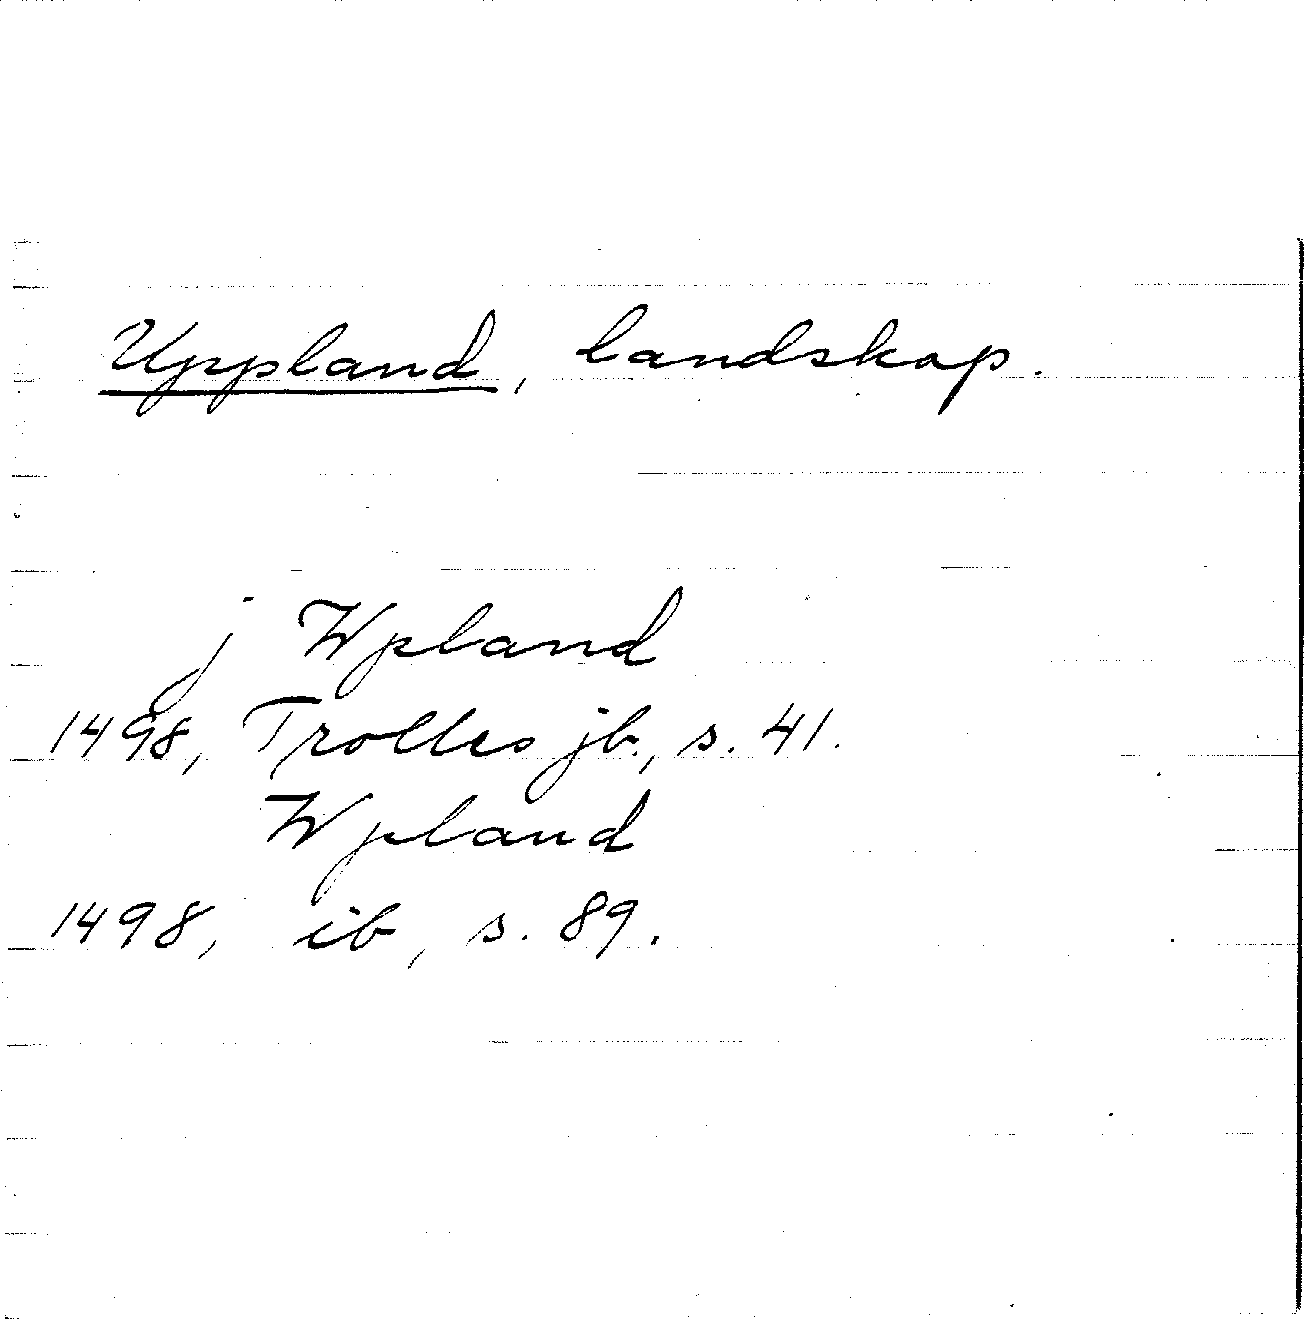 Uppland, landskap.
j Wpland
1498, Trolles jb., s. 41.
Wpland
1498, ib, s. 89.